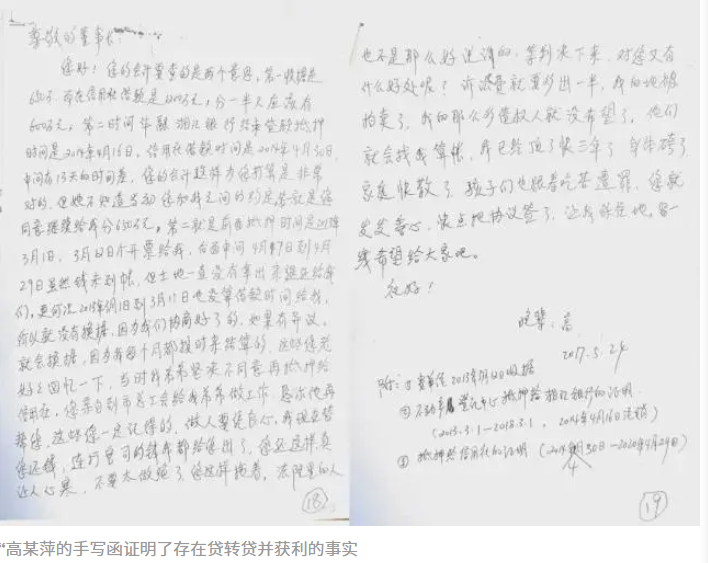 尊敬的董事长:
您好!您的会计要查的是两个意思,第一收据是
650万,而在信用社借款是1200万元,分一半只应该有
600万元,第二时间华融湘江银行结束贷款抵押
时间是2014年4月16日,信用社借款时间是2014年4月30日,
中间有13天的时间差,您的会计这样为您打算是非常
对的,但她不知道当初您和我之间的约定
同意 给我分650万元,第二就是前面抵押时间是2013年
3月1日,3月12日才开票给我,后面中间4月17日到4月
29日虽然钱未到帐,但土地一直没有拿出来退还给我
们,更何况2013年3月1日到3月11日也没算借款时间给我,
所以就没有换据,因为我们协商好了的,如果有异议,
就会换据,因为我每个月都按时来结算的,这些您老
好好回忆一下,当时我弟弟坚决不同意再抵押给
信用社,您亲自到市总工会给我弟弟做工作,恳求他再
帮您,这些您一定记得的,做人要凭良心,我现在替
您还钱,连打官司的钱我都给您出了,您还这样真
让人心寒,不要太做绝了,您这样拖着,法院里的人
18
也不是那么好说话的,等判决下来,对您又有
什么好处呢?诉讼费就要多出一半,我的地被
拍卖了,我的那么多债权人就没希望了,他们
就会找我算帐,我已经顶了快三年了,身体垮了
家庭快散了,孩子们也跟着吃苦遭罪,您就
发发善心,快点把协议签了,让我 地,留一
线希望给大家吧。
祝好!
晚辈:高
2017.5.24
附:① 2013年3月12日收据
② 不动产登记中心抵押给湘江银行的证明
(2013.3.1-2018.3.1,2014年4月16日注销)
③ 抵押给信用社的证明(2014年4月30日-2020年4月29日)
19
“高某萍的手写函证明了存在贷转贷并获利的事实